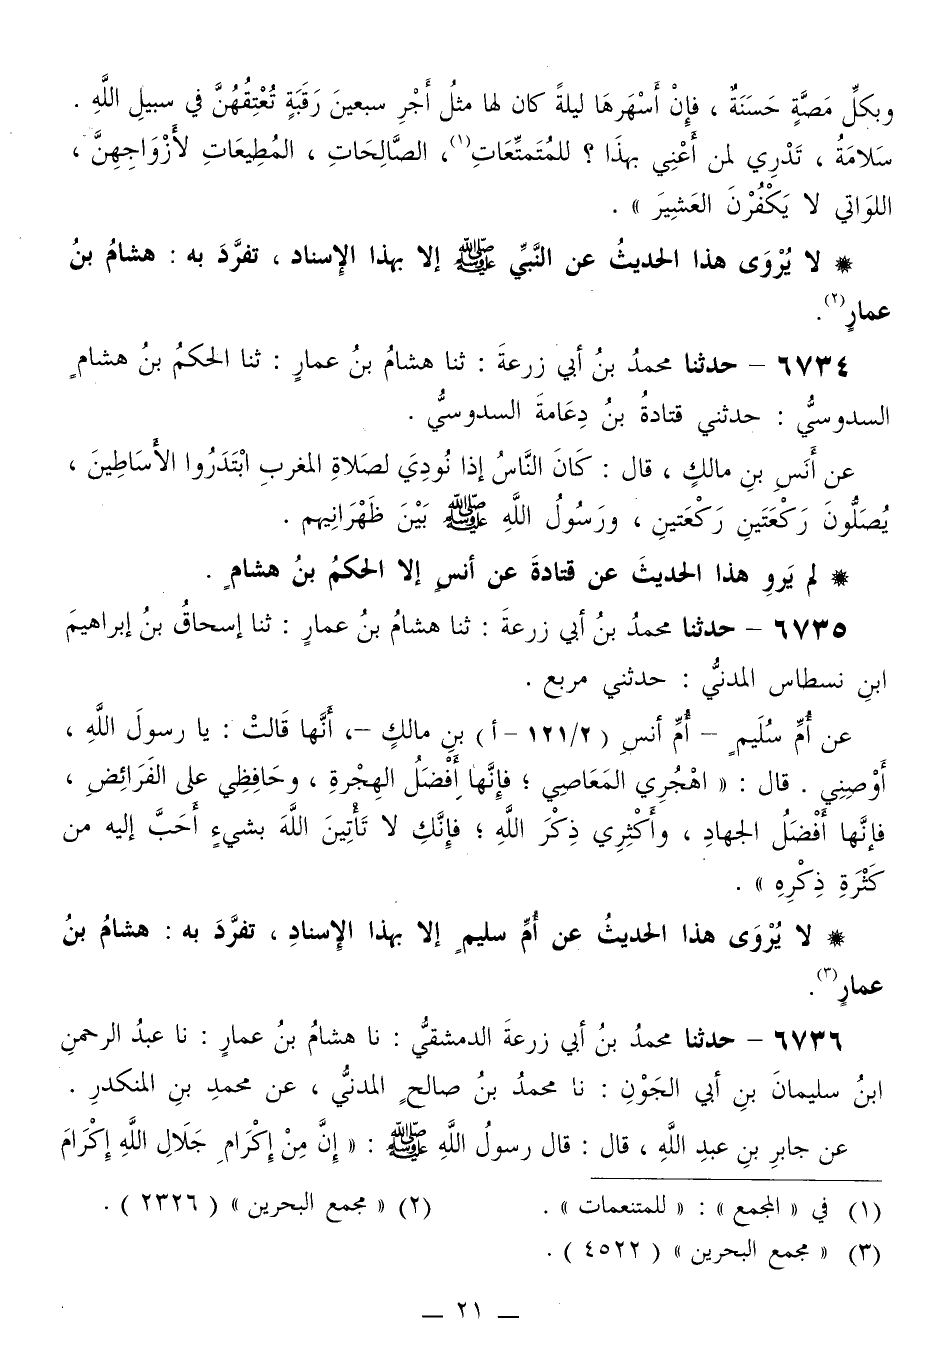 وبكلِّ مَصَّةٍ حَسَنَةٌ ، فإِنْ أَسْهَرَهَا ليلةً كان لها مثلُ أَجْرِ سبعينَ رَقَبَةٍ تُعْتِقُهُنَّ في سبيلِ اللَّهِ .
سَلَامَةُ ، تَدْرِي لمن أَعْنِي بهذَا ؟ للمُتَمتِّعَاتِ(١)، الصَّالِحَاتِ ، المُطِيعَاتِ لأَزْوَاجِهِنَّ ،
اللوَاتي لا يَكْفُرْنَ العَشِيرَ » .
* لا يُرْوَى هذا الحديثُ عن النَّبِّي ﷺ إلا بهذا الإِسناد ، تفرَّدَ به : هشامُ بنُ
عمارٍ(٢).
٦٧٣٤ – حدثنا محمدُ بنُ أبي زرعةَ : ثنا هشامُ بنُ عمارٍ : ثنا الحكمُ بنُ هشامٍ
السدوسيُّ : حدثني قتادةُ بنُ دِعَامةَ السدوسيُّ .
عن أَنَسِ بنِ مالكٍ ، قال : كَانَ النَّاسُ إذا نُودِيَ لصَلاةِ المغربِ ابْتَدَرُوا الأَسَاطِينَ ،
يُصَلُّونَ رَكْعَتَينِ رَكْعَتينِ ، ورَسُولُ اللَّهِ ﷺ بَيْنَ ظَهْرَانِيهم .
* لم يَروِ هذا الحديثَ عن قتادةَ عن أنسٍ إلا الحكمُ بنُ هشامٍ .
٦٧٣٥ – حدثنا محمدُ بنُ أبي زرعةَ : ثنا هشامُ بنُ عمارٍ : ثنا إسحاقُ بنُ إبراهيمَ
ابنِ نسطاس المدنيُّ : حدثني مربع .
عن أُمِّ سُلَيمٍ – أُمِّ أنسِ ( ١٢١/٢ – أ ) بنِ مالكٍ –، أَنَّها قَالتْ : يا رسولَ اللَّهِ ،
أَوْصِنِي . قال : « اهْجُرِي المَعَاصِي ؛ فإِنَّها أَفْضَلُ الهِجْرةِ ، وحَافِظِي على الفَرائضِ ،
فإِنَّها أَفْضَلُ الجهادِ ، وأَكْثِرِي ذِكْرَ اللَّهِ ؛ فإِنَّكِ لا تَأْتِينَ اللَّهَ بشيءٍ أَحَبَّ إليه من
كَثْرَةِ ذِكْرِهِ » .
* لا يُرْوَى هذا الحديثُ عن أُمِّ سليمٍ إلا بهذا الإِسنادِ ، تفرَّدَ به : هشامُ بنُ
عمارٍ(٣).
٦٧٣٦ – حدثنا محمدُ بنُ أبي زرعةَ الدمشقيُّ : نا هشامُ بنُ عمارٍ : نا عبدُ الرحمنِ
ابنُ سليمانَ بنِ أبي الجَوْنِ : نا محمدُ بنُ صالحٍ المدنيُّ ، عن محمدِ بنِ المنكدرِ .
عن جابرِ بنِ عبدِ اللَّهِ ، قال : قال رسولُ اللَّهِ ﷺ : « إِنَّ مِنْ إِكْرَامِ جَلَالِ اللَّهِ إِكْرَامَ
(١) في « المجمع » : « للمتنعمات » . (٢) « مجمع البحرين » ( ٢٣٢٦ ) .
(٣) « مجمع البحرين » ( ٤٥٢٢ ) .
— ٢١ —